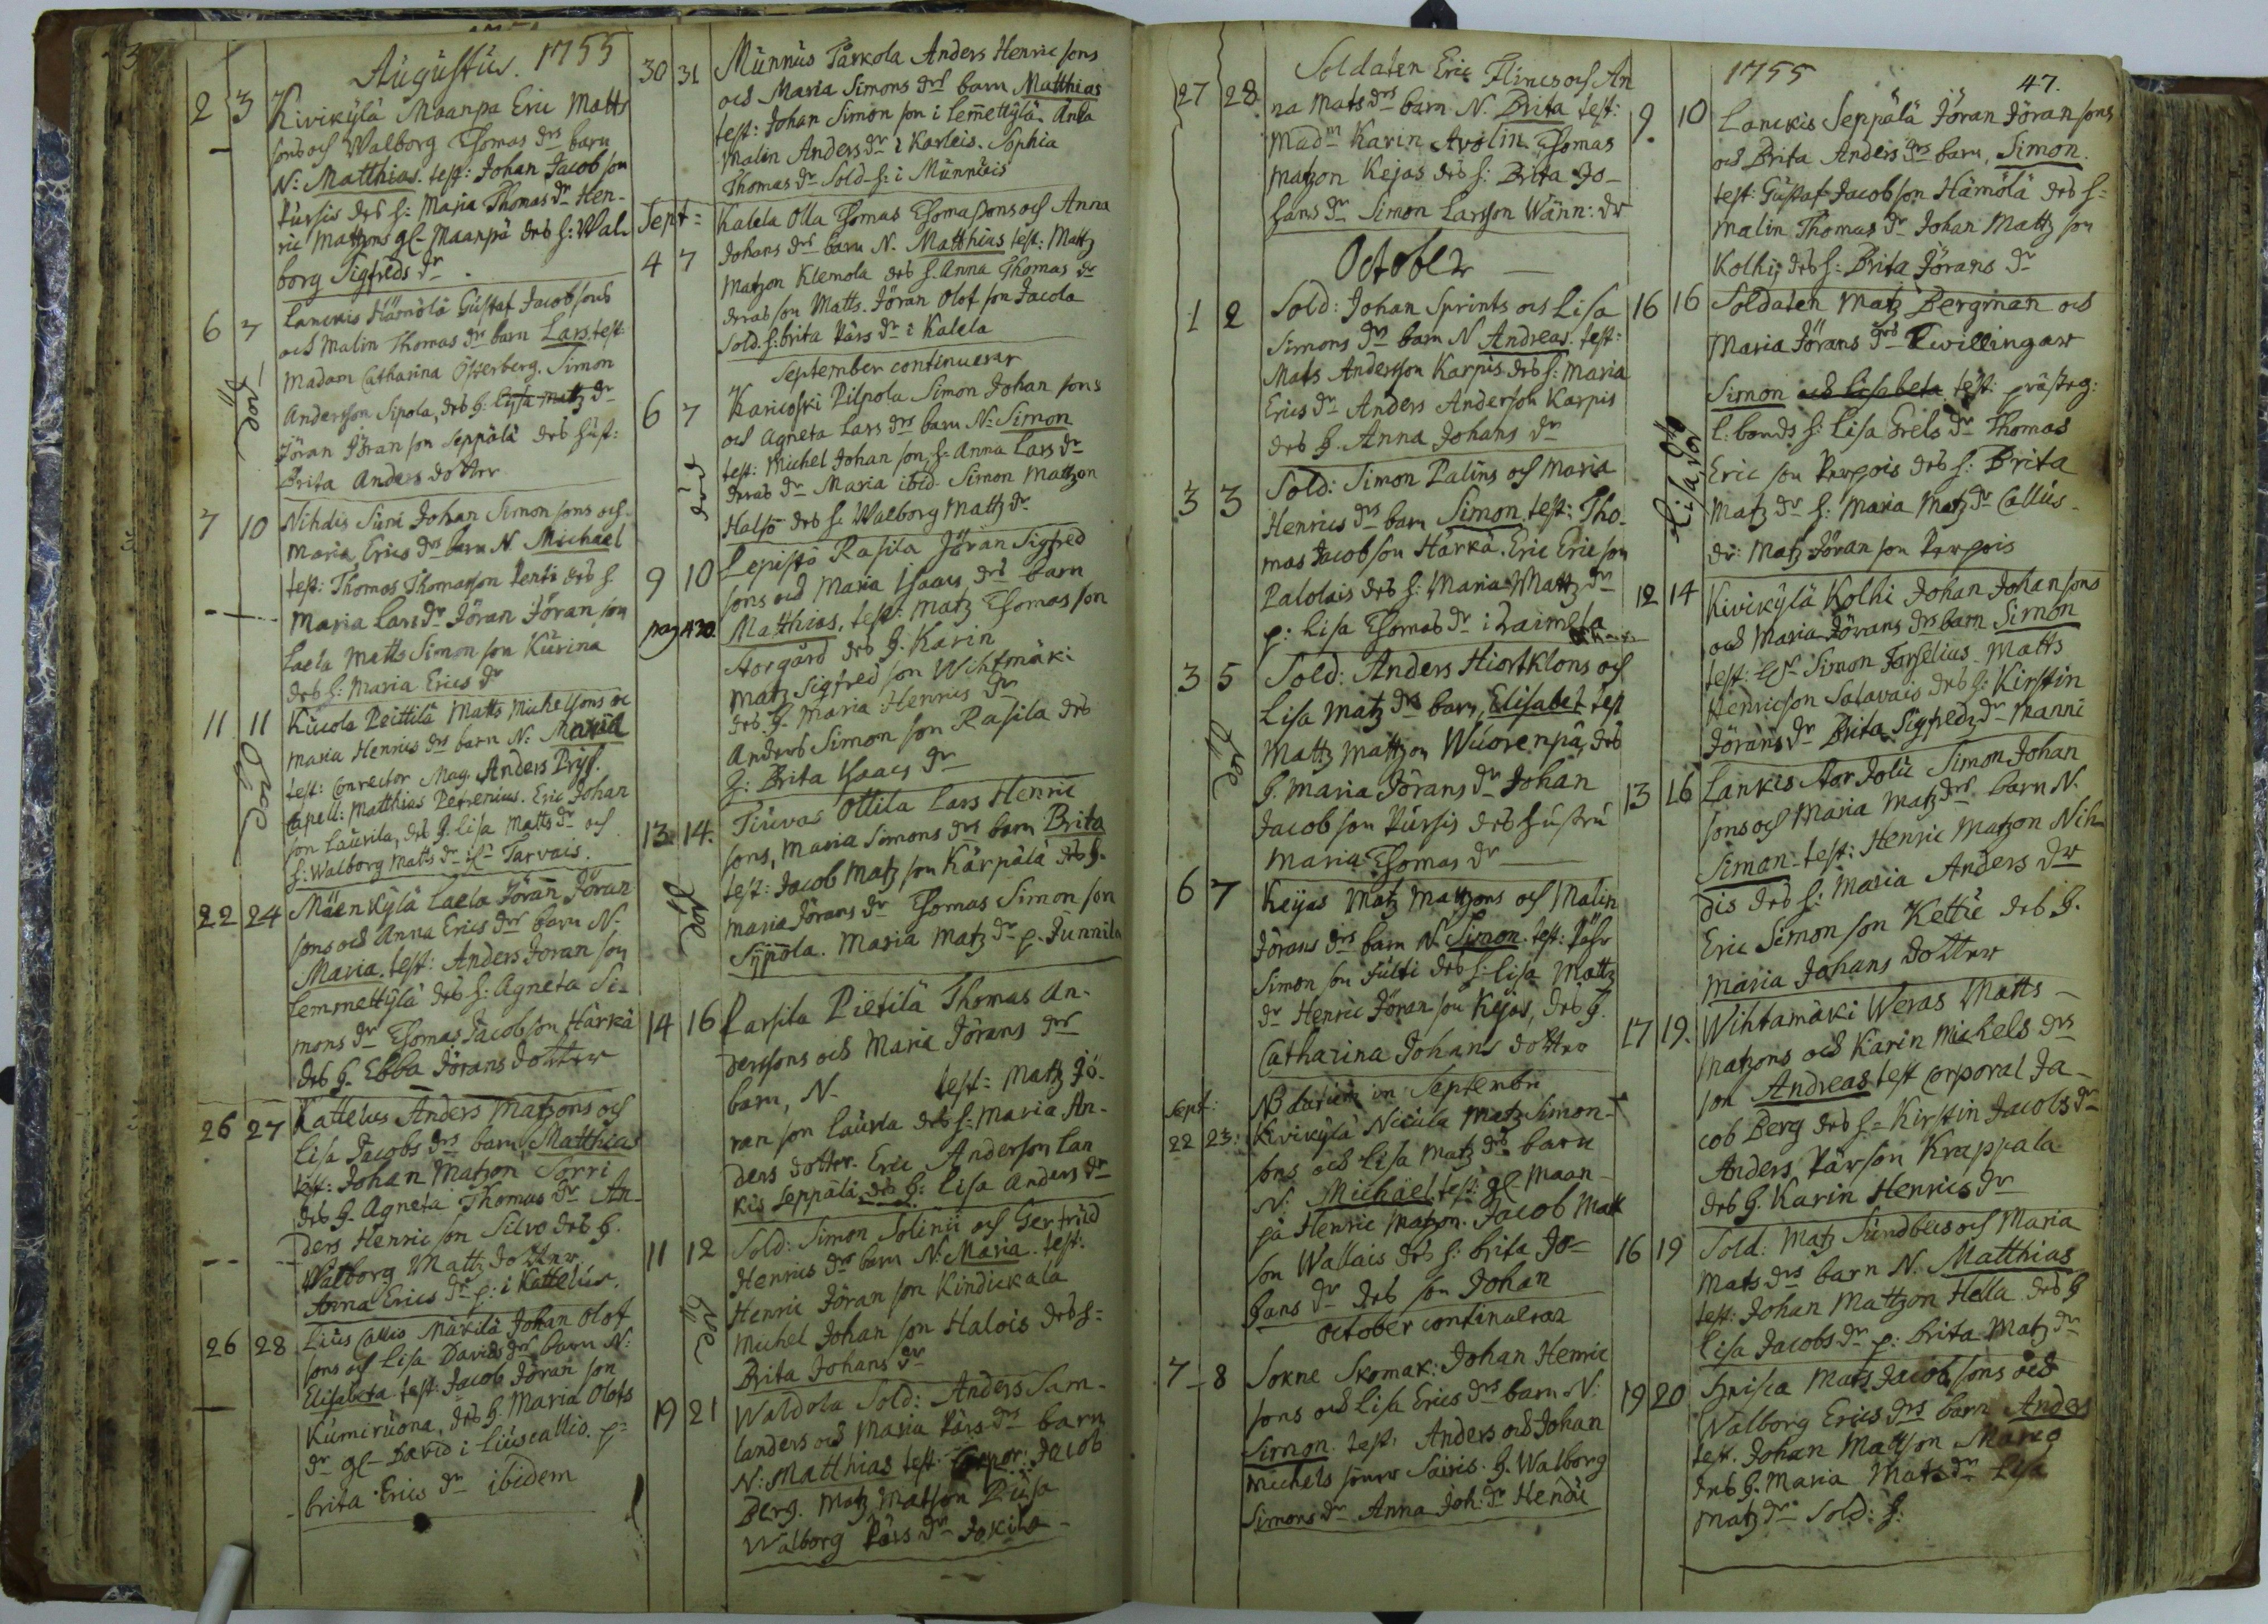 Augustus. 1755
2 3 Kivikylä Maanpä Eric Matts
sons och Walborg Thomas drs barn
N: Matthias. test: Johan Jacob son
Pursis des h: Maria Thomas dr Hen-
ric Mattzons gl- Maanpä des h: Wal-
borg Sigfreds dr
6 7 Lanckis Hämölä Gustaf Jacobsons
och Malin Thomas dr barn Lars. test:
Madam Catharina Österberg. Simon
Andersson Sipola, des h: Lisa Matz dr
Jöran Jöran son Seppälä des hust:
Brita Anders dotter
7 10 Nihdis Simi Johan Simon sons och
Maria Erics drs barn N. Michael
test: Thomas Thomasson Penti des h.
Maria Lars dr Jöran Jöran son
Laela Matts Simon son Kurina
des h: Maria Erics dr
11 11 Kucola Peittilä Matts Michelsons oc
Maria Henrics drs barn N: Maria
test: Conrector Mag. Anders Pryss.
Capell: Matthias Petrenius. Eric Johan
son Laurila, des h. Lisa Matts dr och
h: Walborg Matts dr Tarvais.
22 24 Mäenkylä Laela Jöran Jöran
sons och Anna Erics drs barn N-
Maria. test: Anders Jöran son
Lemmettylä des h: Agneta Si-
mons dr Thomas Jacobson Härkä
des h. Ebba Jörans dotter
26 27 Kattelus Anders Matzons och
Lisa Jacobs drs barn, Matthias
test: Johan Matzon Sorri
des h. Agneta Thomas dr An-
ders Henric son Silvo des h.
Walborg Mattz dotter
Anna Erics dr p: i Kattelus.
26 28 Lius Callio Mäkilä Johan Olof
sons och Lisa Davids drs barn N:
Elisabeta. test: Jacob Jöran son
Kumiruona, des h. Maria Olofs
dr gl- David i Liuscallio. p=
Brita Erics dr ibidem
30 31 Munnus Tarkola Anders Henric sons
och Maria Simons drs barn Matthias
test: Johan Simon son i Lemettylä
Malin Anders dr i Karleis. Sophia
Thomas dr Sold-h: i Munnuis
Sept=
4 7 Kalela Olla Thomas Thomassons och Anna
Johans drs barn N. Matthias test: Mattz
Matzon Klemola des h. Anna Thomas dr
deras son Matts. Jöran Olof son Jacola
Sold. h: Brita Pärs dr i Kalela
September continuerar
6 7 Karicoski Pilpola Simon Johan sons
och Agneta Lars drs barn N: Simon
test: Michel Johan son, h- Anna Lars dr
deras dr Maria ibid. Simon Mattzon
Halso des h: Walborg Mattz dr
9 10 Lepistö Rasila Jöran Sigfred
sons och Maria Isaacs drs barn
pag 430. Matthias, test: Matz Thomas son
Storgård des h. Karin
Matz Sigfred son Wihtmäki
des h. Maria Henrics dr
Anders Simon son Rasila des
h: Brita Isaacs dr
13 14. Tiuvas Ottila Lars Henric
sons, Maria Simons drs barn Brita
test: Jacob Matz son Kärpälä des h-
Maria Jörans dr Thomas Simon son
Syppola. Maria Matz dr p. Junnila
14 16 Parsila Pietilä Thomas An-
derssons och Maria Jörans drs
barn, N. test: Matz Jö-
ran son Laurla des h: Maria An-
ders dotter. Eric Anderson Lan
kis Seppälä, des h: Lisa Anders dr
11 12 Sold: Simon Solinii och Gertrud
Henrics drs barn N: Maria. test:
Henric Jöran son Kindickala
Michel Johan son Halois des h=
Brita Johans dr
19 21 Waldola Sold: Anders Sam-
landers och Maria Pärs drs barn
N: Matthias test- Corpor: Jacob
Berg. Matz Matson Piusa
Walborg Pärs dr Jokila
27 28 Soldaten Eric Flincs och An
na Mats drs barn N. Brita test:
Madm Karin Avolin. Thomas
Matzon Kejas des h: Brita Jo-
hans dr Simon Larsson Wänn: dr
October
1 2 Sold: Johan Sprints och Lisa
Simons drs barn N Andreas. test:
Mats Andersson Karpis. des h: Maria
Erics dr Anders Anderson Karpis
des h. Anna Johans dr
3 3 Sold: Simon Palins och Maria
Henrics drs barn Simon. test: Tho-
mas Jacobson Härkä. Eric Eric son
Palolais des h: Maria Mattz dr
p: Lisa Thomas dr i Raimela
3 5 Sold: Anders Hiortklons och
Lisa Matz drs barn, Elisabet test
Mattz Mattzon Wuorenpä, des
h. Maria Jörans dr Johan
Jacob son Pursis des hustru
Maria Thomas dr
6 7 Keijas Matz Matzons och Malin
Jörans drs barn N. Simon. test: Pähr
Simon son Julti des h: Lisa Mattz
dr Henric Jöran son Kejas, des h.
Catharina Johans dotter
NB datum in Septembri
Sept:
22 23: Kivikylä Niuula Matz Simon-
sons och Lisa Matz drs barn
N. Michael. test: gl- Maan-
pä Henric Matzon. Jacob Matt
son Wallais des h: Brita Jo=
hans dr des son Johan
October continuerar
7-8 Sokne Skomak: Johan Henric
sons och Lisa Erics drs barn N:
Simon. test: Anders och Johan
Michels söner Sairis. h. Walborg
Simons dr Anna Joh: dr Hendi
1755 47.
9. 10 Lanckis Seppälä Jöran Jöransons
och Brita Anders drs barn, Simon.
test: Gustaf Jacobson Hämölä des h=
Malin Thomas dr Johan Mattz son
Kolhi, des h: Brita Jörans dr
16 16 Soldaten Matz Bergman och
Maria Jörans drs Twillingar
Simon och Lisabeta test: prästeg:
l: bonds h: Lisa Grels dr Thomas
Eric son Perpois des h: Brita
Matz dr h: Maria Matz dr Callus-
dr: Matz Jöran son Perpois
12 14 Kivikylä Kolhi Johan Johansons
och Maria Jörans drs barn Simon
test: Simon Forselius. Matts
Henricson Salavais des h: Kirstin
Jörans dr Brita Sigfreds dr Manni
13 16 Lankis Stor Jolu Simon Johan
sons och Maria Matz drs barn N.
Simon. test: Henric Matzon Nih-
dis des h: Maria Anders dr
Eric Simon son Kettu des h.
Maria Johans dotter
17 19. Wihtamäki Weras Matts
Matzons och Karin Michels drs
son Andreas test Corporal Ja-
cob Berg des h= Kirstin Jacobs dr
Anders Pärson Krappala
des h. Karin Henrics dr
16 19 Sold: Matz Sundbecs och Maria
Mats drs barn N. Matthias
test: Johan Mattzon Hella des h
Lisa Jacobs dr p: Brita Matz dr
19 20 Spisca Mats Jacobsons och
Walborg Erics drs barn Anders
test. Johan Mattson Marco
des h. Maria Mats dr Lisa
Matz dr Sold: h: